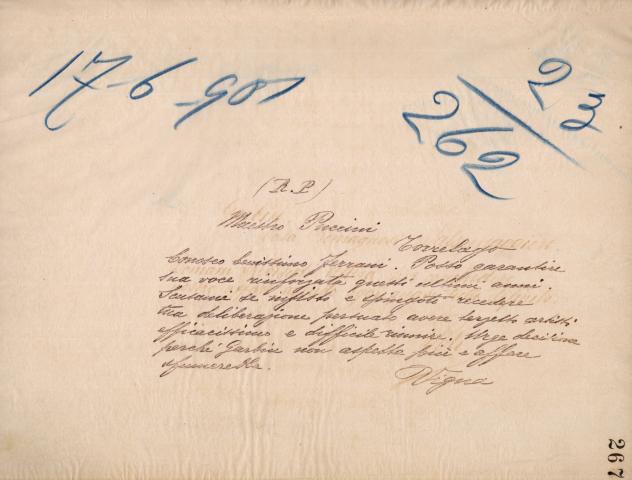 17-6-901
23/262
(R.P.)
Maestro Puccini
Torrelago
Conosco benissimo Ferrani. Posso garantire
sua voce rinforzata questi ultimi anni.
Scusami se insisto e spingoti recedere
tua deliberazione persuaso avere terzetto artisti
efficacissimo e difficile riunire. Urge decisione
perché Garbin non aspetta più e affare
sfumerebbe.
Vigna
267